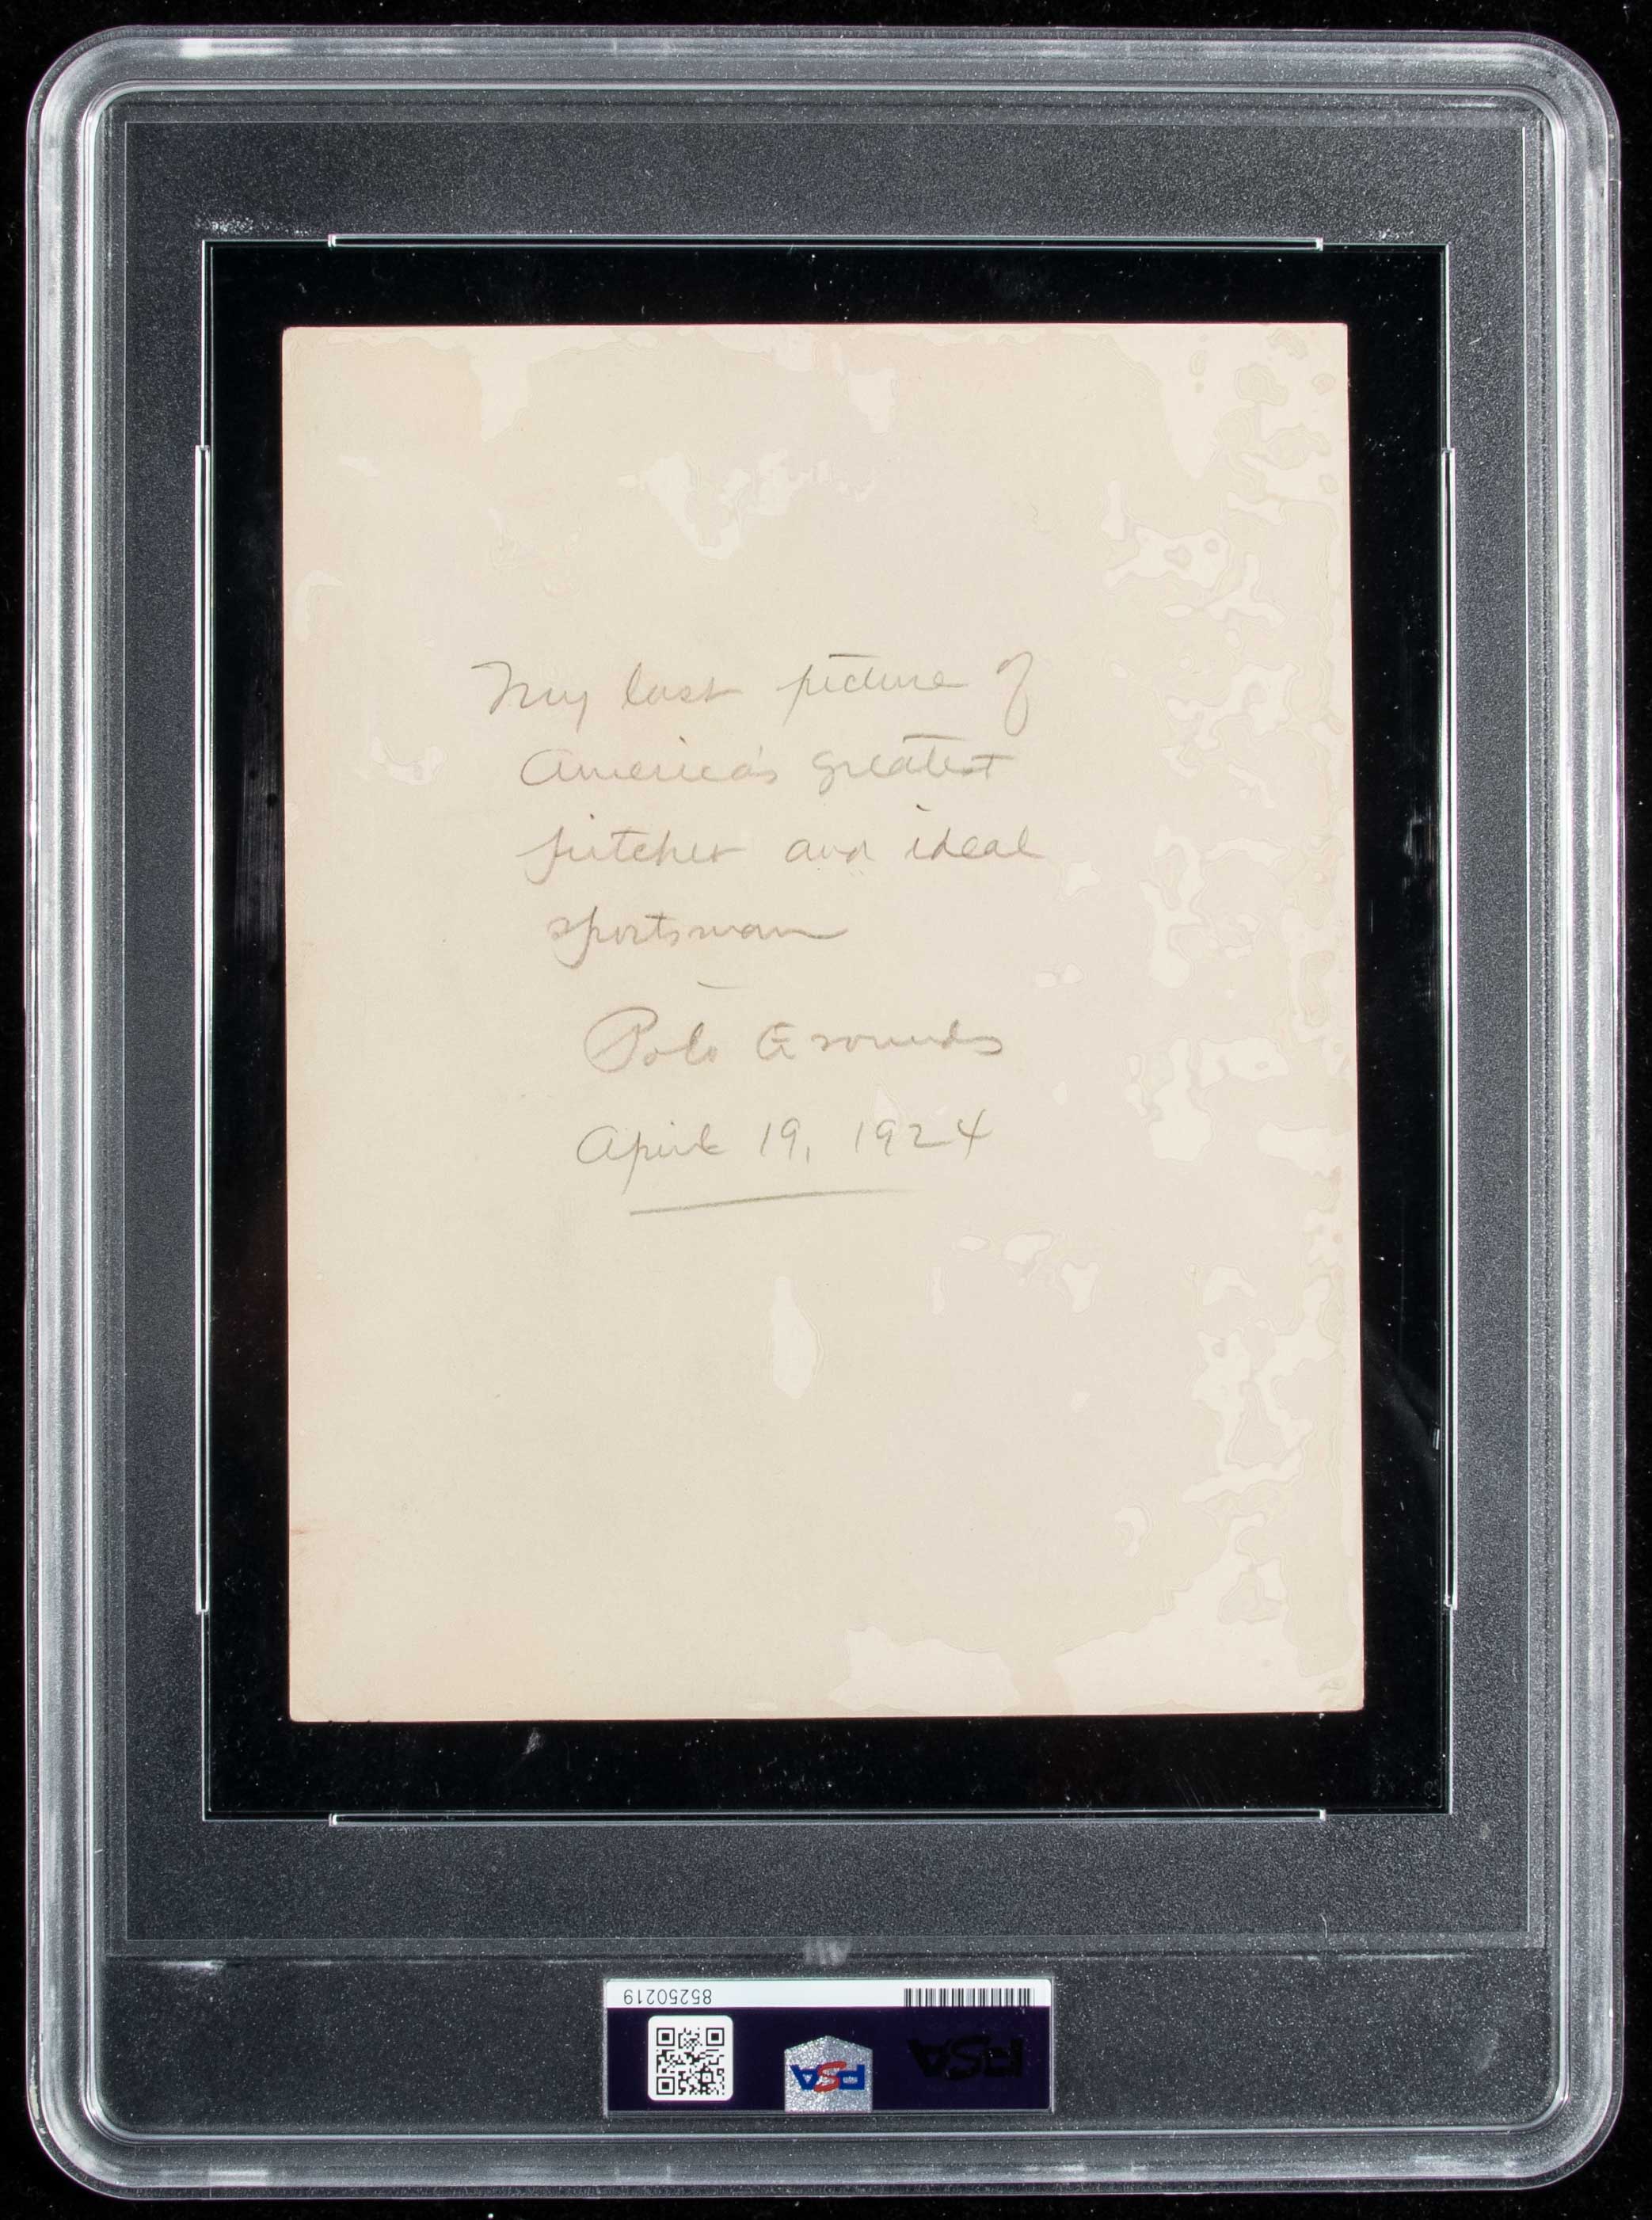 My last picture of
America's greatest
pitcher and ideal
sportsman
Polo Grounds
April 19, 1924
85250219
PSA
PSA